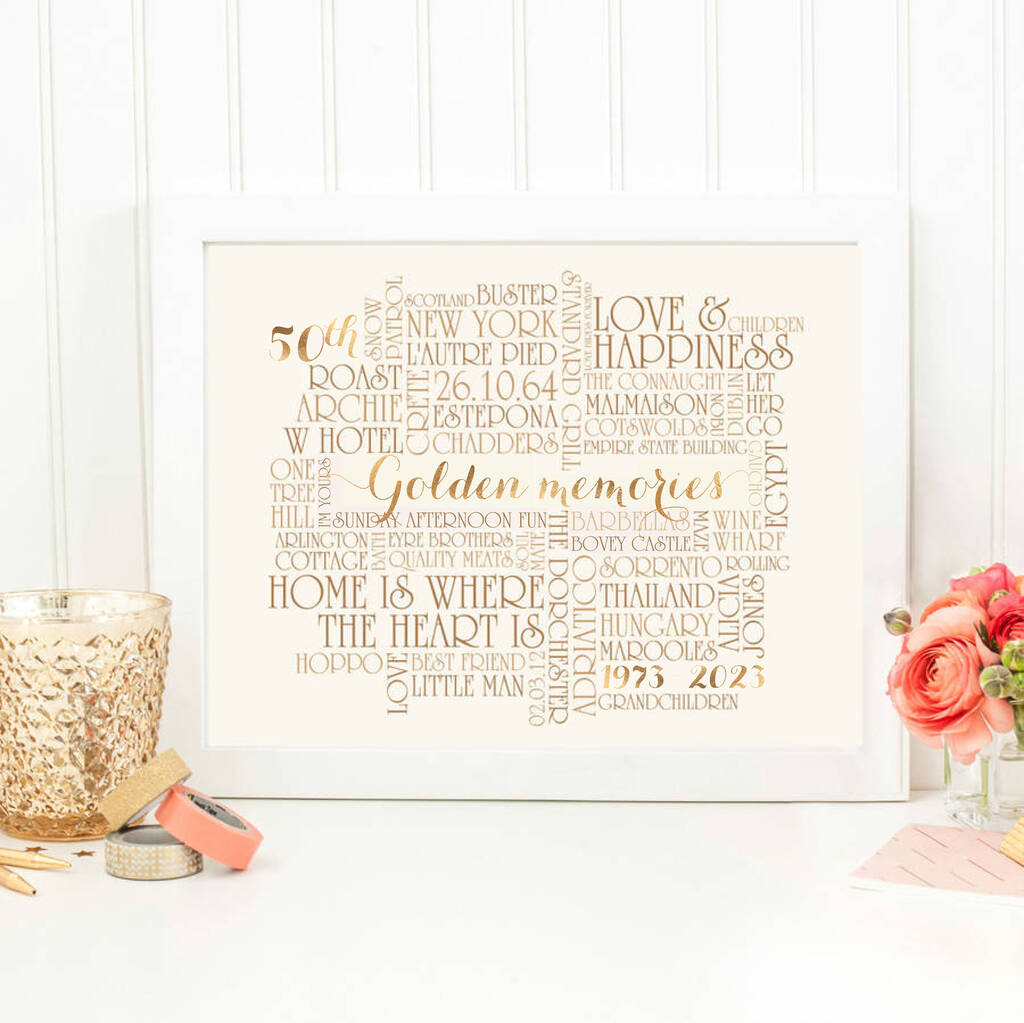 50th
SNOW
PATROL
SCOTLAND
BUSTER
NEW YORK
L'AUTRE PIED
26.10.64
ESTEPONA
CHADDERS
CRETE
STANDARD GRILL
LOVE &
HAPPINESS
CHILDREN
ROAST
ARCHIE
W HOTEL
THE CONNAUGHT
MALMAISON
COTSWOLDS
EMPIRE STATE BUILDING
NOBU
DUBLIN
LET
HER
GO
GAUCHO
EGYPT
ONE
TREE
HILL
I'M YOURS
Golden memories
SUNDAY AFTERNOON FUN
BARBELLAS
BOVEY CASTLE
MAZE
WINE
WHARF
ARLINGTON
COTTAGE
BATH
EYRE BROTHERS
QUALITY MEATS
SOIL
MATE
THE DORCHESTER
ADRIATICO
SORRENTO
ROLLING
THAILAND
HUNGARY
MAROOLES
VICTIV
JONES
HOME IS WHERE
THE HEART IS
HOPPO
LOVE
BEST FRIEND
LITTLE MAN
02.03.12
1973 - 2023
GRANDCHILDREN